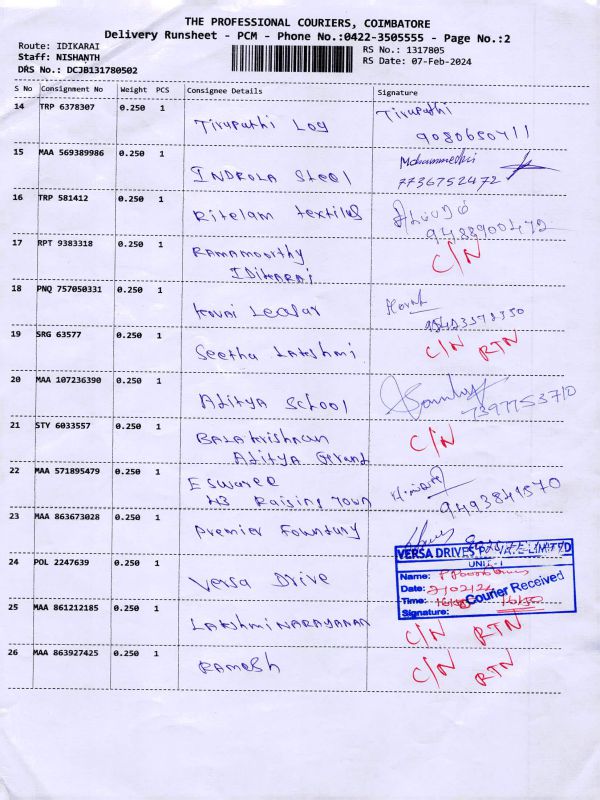 THE PROFESSIONAL COURIERS, COIMBATORE
Delivery Runsheet - PCM - Phone No.:0422-3505555 - Page No.:2
Route: IDIKARAI
RS No.: 1317805
Staff: NISHANTH
RS Date: 07-Feb-2024
DRS No.: DCJB131780502
S No Consignment No Weight PCS Consignee Details Signature
14 TRP 6378307 0.250 1 Tirupathi Log Tirupathi
9080650711
15 MAA 569389986 0.250 1 INDROLA Steel
7736752472
16 TRP 581412 0.250 1 Ritelam textiles
9488900472
17 RPT 9383318 0.250 1 Ramamoorthy C/N
IDIKARAI
18 PNQ 757050331 0.250 1 Kovai
19 SRG 63577 0.250 1 Seetha Lakshmi C/N RTN
20 MAA 107236390 0.250 1 Aditya School
7397753710
21 STY 6033557 0.250 1 Balakrishnan C/N
Aditya
22 MAA 571895479 0.250 1 Eswaree
H3 Raising Town
9493841570
23 MAA 863673028 0.250 1 Premier
VERSA DRIVES PRIVATE LIMITED
UNIT-1
24 POL 2247639 0.250 1 Versa Drive
Name:
Date:
Time:
Courier Received
Signature:
25 MAA 861212185 0.250 1 LAKSHMI NARAYANAN C/N RTN
26 MAA 863927425 0.250 1 Ramesh C/N RTN